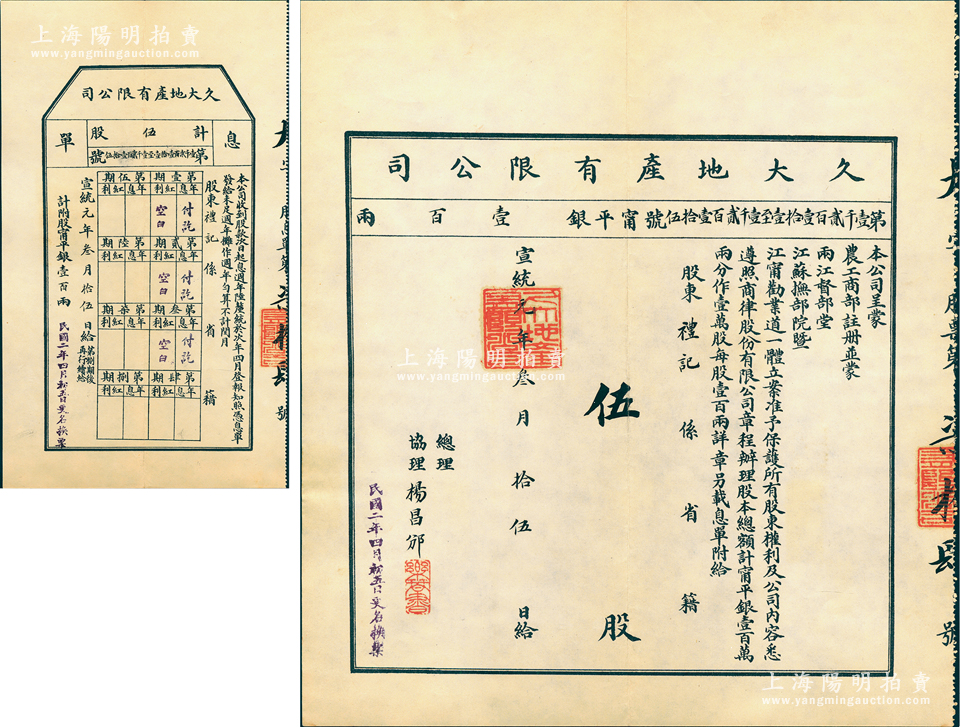 上海陽明拍賣
www.yangmingauction.com
久大地產有限公司
息
計伍股
第壹千貳百壹拾壹至壹千貳百壹拾伍號
單
本公司收到股款次日起息週年陸釐統於次年四月登報知照憑息單
發給未足週年攤作週年勻算不計閏月
股東禮記係省籍
第壹期
年息紅利
付訖
空白
第伍期
年息紅利
第貳期
年息紅利
付訖
空白
第陸期
年息紅利
第叁期
年息紅利
付訖
空白
第柒期
年息紅利
第肆期
年息紅利
第捌期
年息紅利
宣統元年叁月拾伍日給
第捌期後
再行續給
計附股甯平銀壹百兩
民國二年四月初五日更名換票
號
久大地產有限公司
第壹千貳百壹拾壹至壹千貳百壹拾伍號甯平銀壹百兩
本公司呈蒙
農工商部註册並蒙
兩江督部堂
江蘇撫部院暨
江甯勸業道一體立案准予保護所有股東權利及公司內容悉
遵照商律股份有限公司章程辦理股本總額計甯平銀壹百萬
兩分作壹萬股每股壹百兩詳章另載息單附給
股東禮記係省籍
伍股
宣統元年叁月拾伍日給
總理
協理楊昌邠
民國二年四月初五日更名換票
號
上海陽明拍賣
www.yangmingauction.com
上海陽明拍賣
www.yangmingauction.com